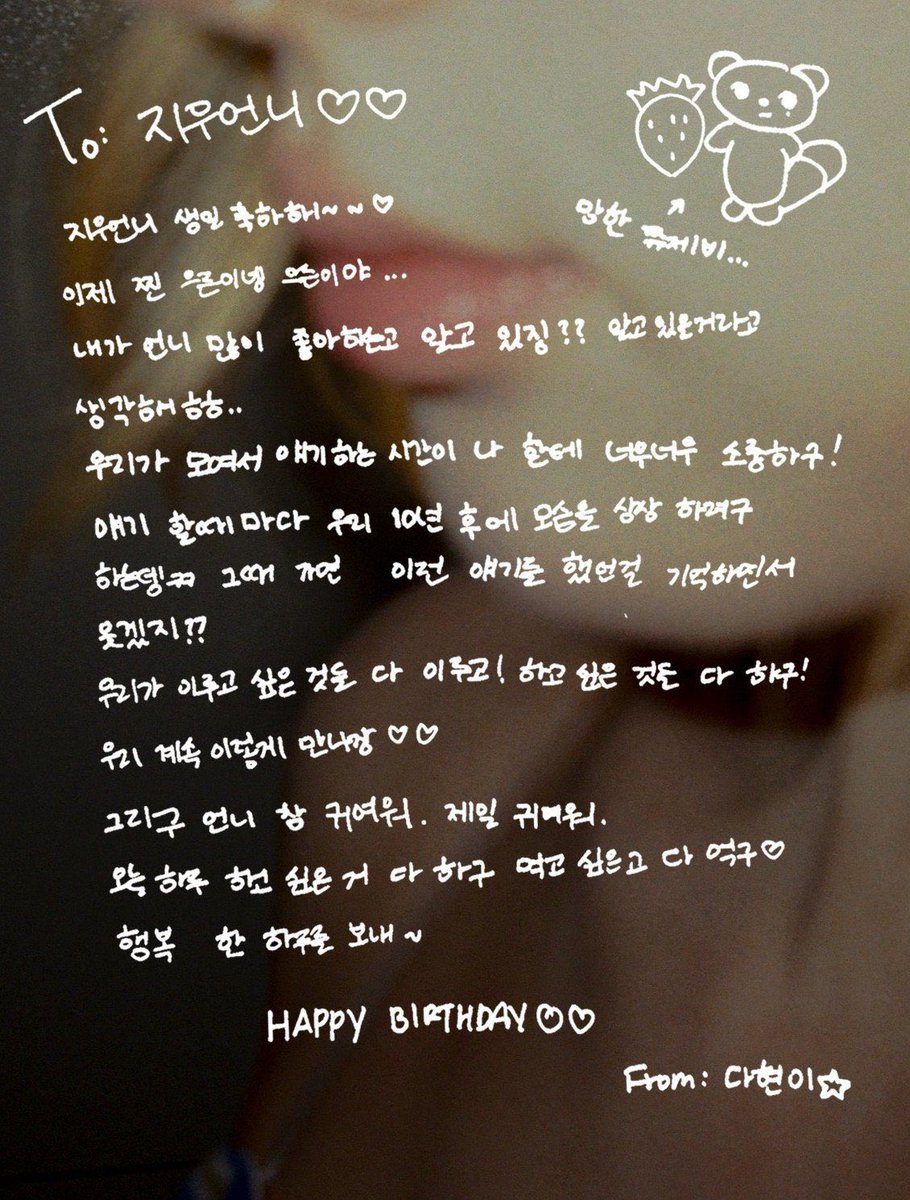 To: 지우언니♡♡
지우언니 생일 축하해~~♡
망한 쮸제비...
이제 찐 으른이넹 으른이야...
내가 언니 많이 좋아하는고 알고 있징?? 알고있은거라고
생각해 히히..
우리가 모여서 얘기하는 시간이 나 한테 너무너무 소중하구!
얘기 할때마다 우리 10년 후에 모습을 상상 하려구
하는뎅!ㅋㅋ 그때 가면 이런 얘기들 했던걸 기억하면서
웃겠지??
우리가 이루고 싶은 것들 다 이루고! 하고 싶은 것들 다 하구!
우리 계속 이렇게 만나장♡♡
그리구 언니 참 귀여워. 제일 귀여워.
오늘 하루 하고 싶은 거 다 하구 먹고 싶은고 다 먹구♡
행복 한 하루를 보내~
HAPPY BIRTHDAY♡♡
From: 다현이☆